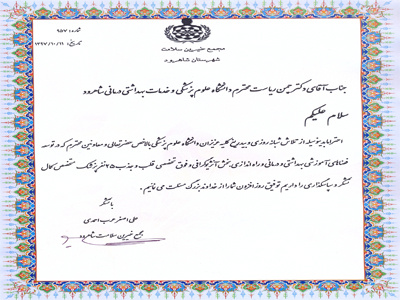 شماره: ۹۵۷
تاریخ: ۱۳۹۷/۱۰/۲۹
مجمع خیرین سلامت
شهرستان شاهرود
جناب آقای دکتر چمن ریاست محترم دانشگاه علوم پزشکی و خدمات بهداشتی درمانی شاهرود
سلام علیکم
احتراما بدینوسیله از تلاش شبانه روزی و بیدریغ کلیه عزیزان دانشگاه علوم پزشکی بالاخص حضرتعالی و معاونین محترم که در توسعه
فضاهای آموزشی بهداشتی و درمانی و راه اندازی بخش آنژیوگرافی و فوق تخصصی قلب و جذب ۶۵ نفر پزشک متخصص کمال
تشکر و سپاسگذاری را داریم توفیق روز افزون شما را از خداوند بزرگ مسئلت می نمائیم.
با تشکر
علی اصغر عرب احمدی
مجمع خیرین سلامت شاهرود